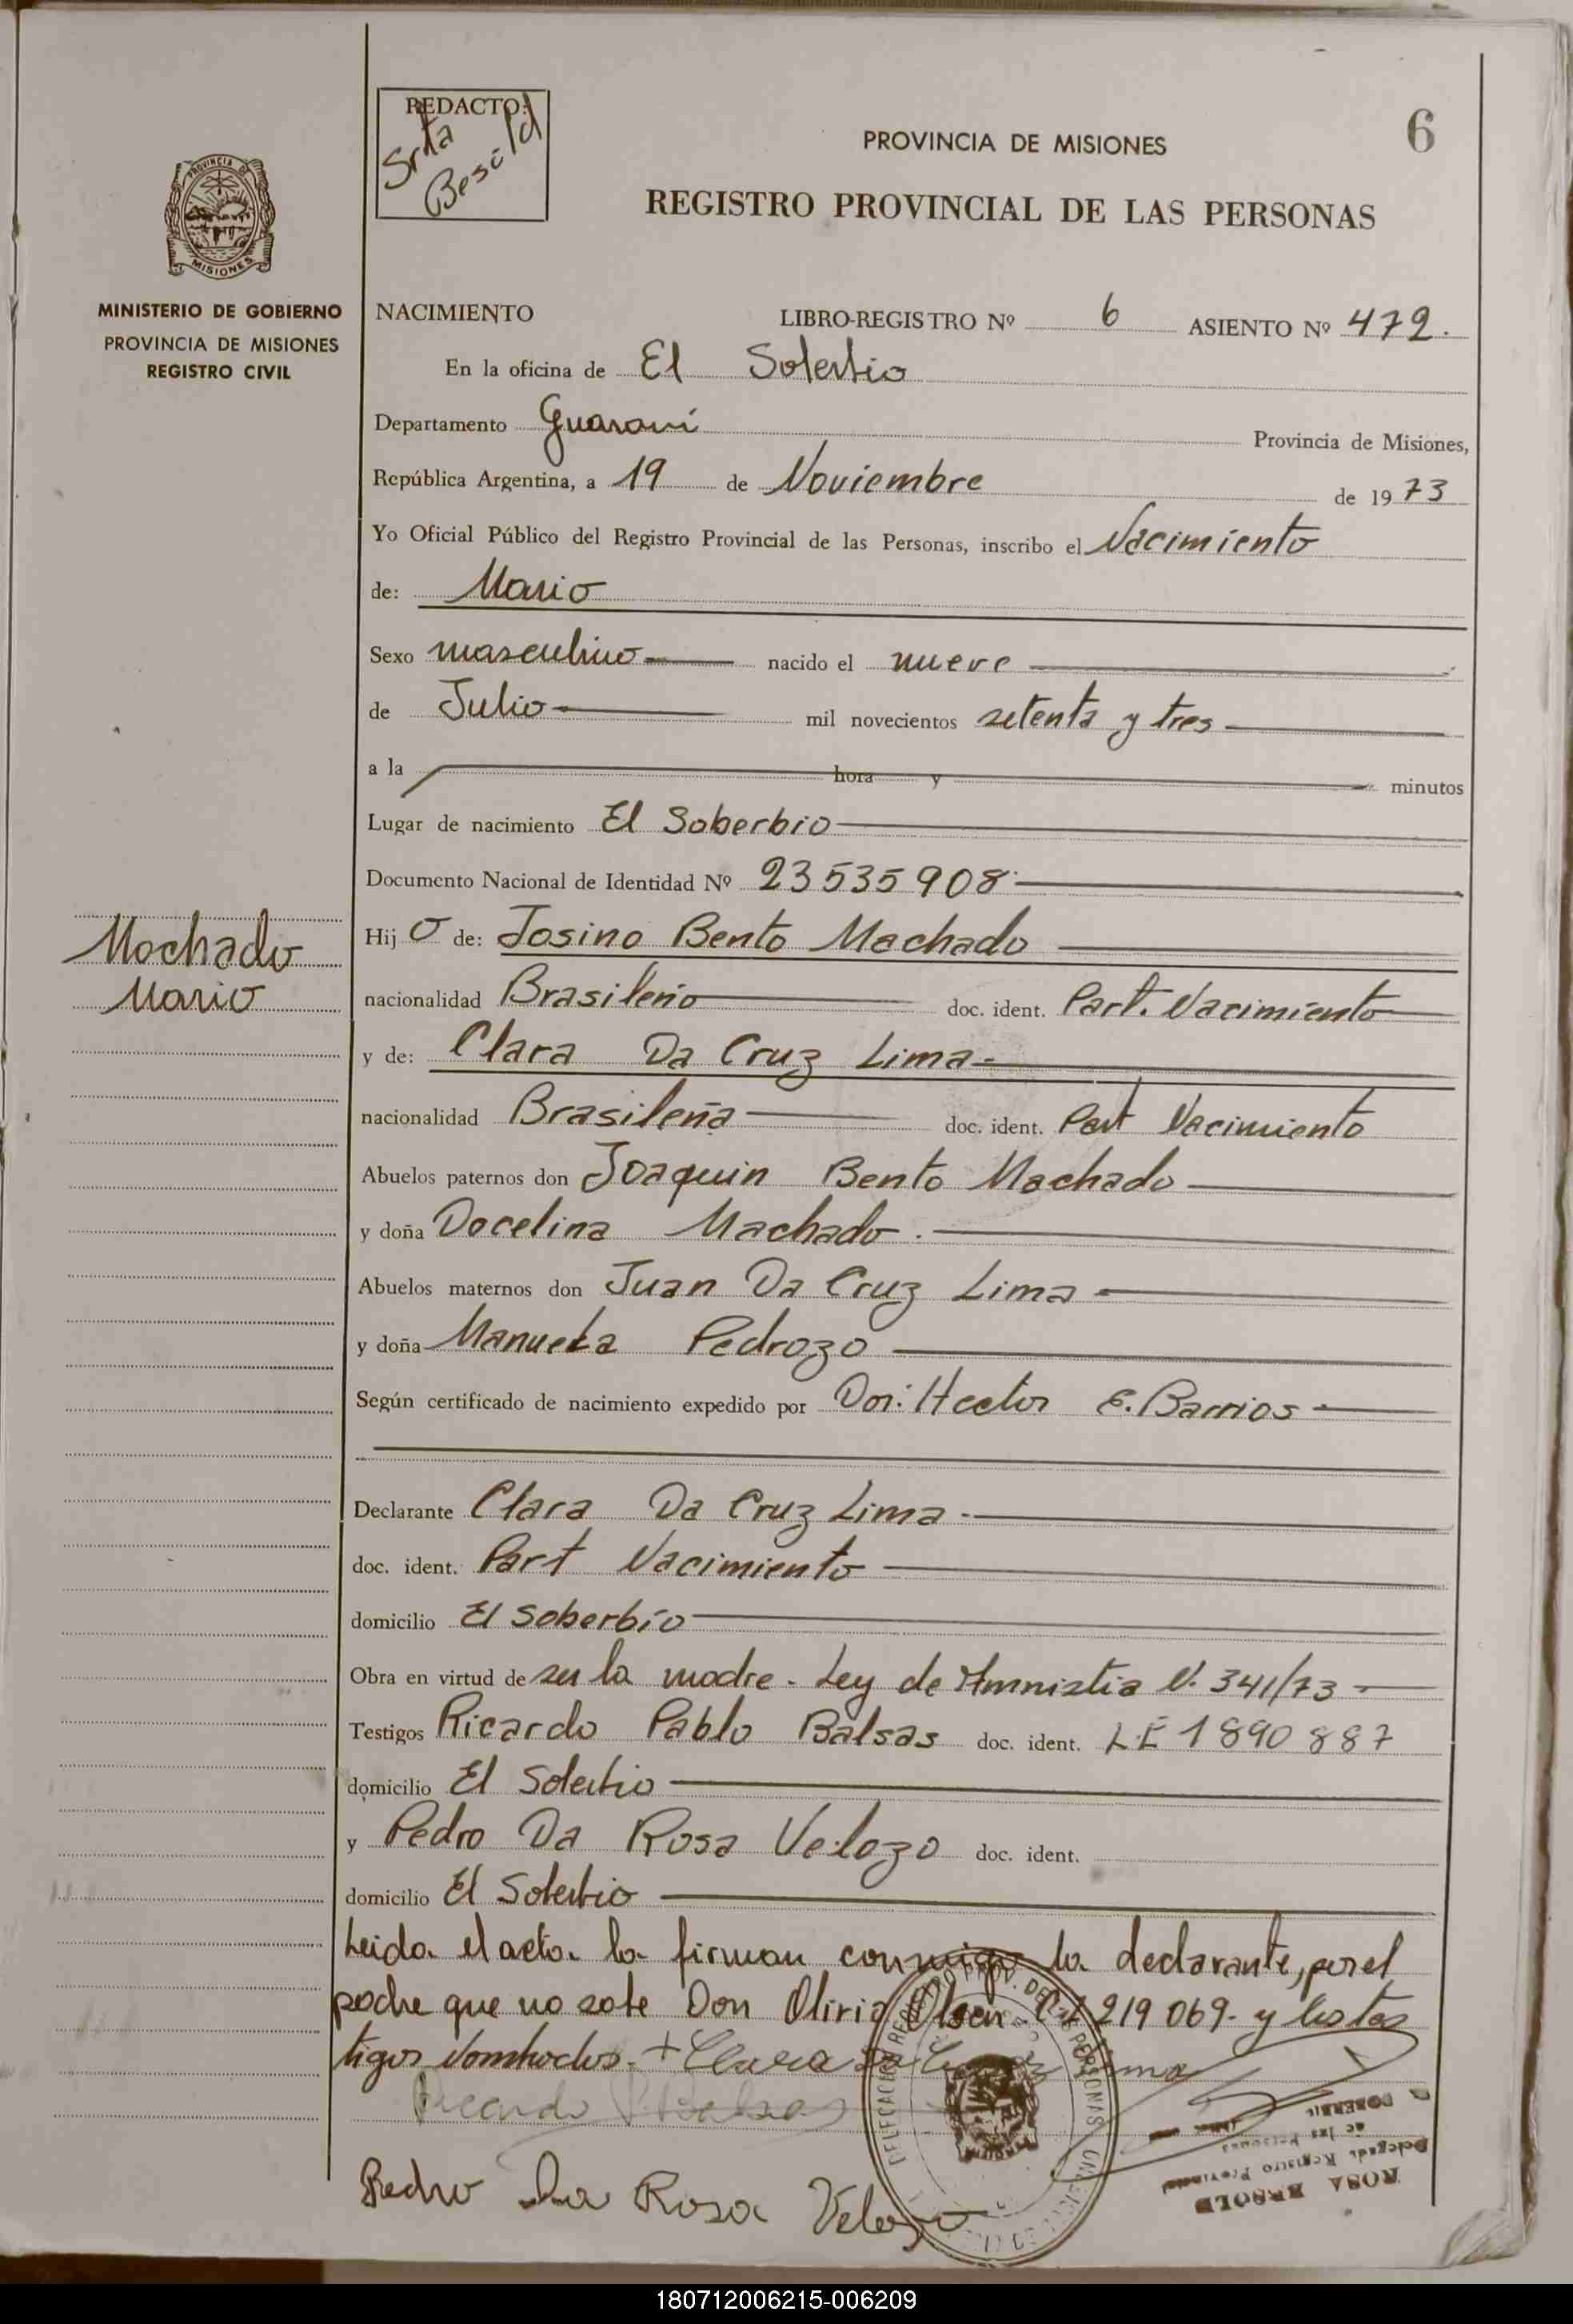 REDACTO:
Srta
PROVINCIA DE MISIONES
6
REGISTRO PROVINCIAL DE LAS PERSONAS
PROVINCIA DE
MISIONES
MINISTERIO DE GOBIERNO
PROVINCIA DE MISIONES
REGISTRO CIVIL
NACIMIENTO LIBRO-REGISTRO Nº 6 ASIENTO Nº 472.
En la oficina de El Soberbio
Departamento Guaraní Provincia de Misiones,
República Argentina, a 19 de Noviembre de 1973
Yo Oficial Público del Registro Provincial de las Personas, inscribo el Nacimiento
de: Mario
Sexo masculino nacido el nueve
de Julio mil novecientos setenta y tres
a la hora y minutos
Lugar de nacimiento El Soberbio
Documento Nacional de Identidad Nº 23535908
Machado
Mario
Hijo de: Josino Bento Machado
nacionalidad Brasileño doc. ident. Part. Nacimiento
y de: Clara Da Cruz Lima
nacionalidad Brasileña doc. ident. Part Nacimiento
Abuelos paternos don Joaquin Bento Machado
y doña Docelina Machado.
Abuelos maternos don Juan Da Cruz Lima
y doña Manuela Pedrozo
Según certificado de nacimiento expedido por Don: Hector E. Barrios
Declarante Clara Da Cruz Lima
doc. ident. Part Nacimiento
domicilio El Soberbio
Obra en virtud de ser la madre - Ley de Amnistia N. 341/73
Testigos Ricardo Pablo Balsas doc. ident. L.E 1890887
domicilio El Soberbio
y Pedro Da Rosa Velozo doc. ident.
domicilio El Soberbio
Leida el acta la firman conmigo la declarante, por el
padre que no sabe Don 219069 - y los tes
tigos + Clara Da Cruz Lima
Ricardo P Balsas
Pedro Da Rosa Velozo
ROSA
Delegada Registro Provincial
de las Personas
SOBERBIO
180712006215-006209